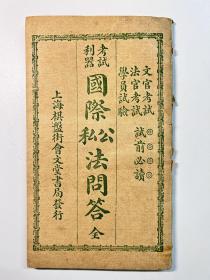 文官考試
法官考試
學員試驗
試前必讀
考試利器
國際公私法問答 全
上海棋盤街會文堂書局發行